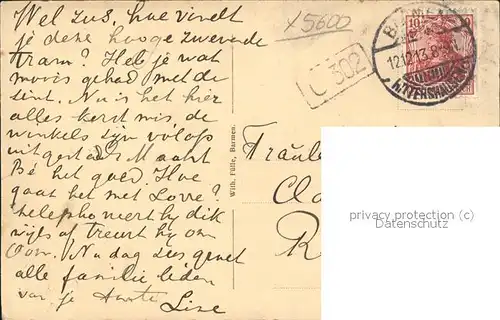 Wel zus, hoe vindt
je deze hooge zwevende
tram? Heb je wat
moois gehad met de
sint. Nu is het hier
alles kerst mis, de
winkels zijn volop
uitgestald. Maakt
Bé het goed. Hoe
gaat het met Lorre?
thelephoneert hij dik
wijls of treurt hij om
Oom. Nu dag zus groet
alle familie leden
van je tante
Line
x5600
C 302
BARMEN
12.12.13.8-9N
RITTERSHAUSEN
10
10
Wilh. Fülle, Barmen.
Fräule
Cla
R
privacy protection (c)
Datenschutz